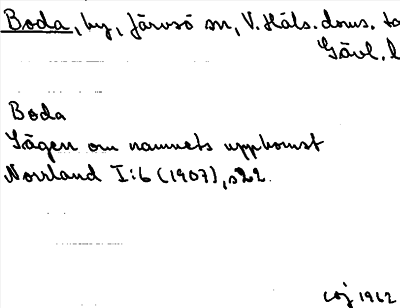 Boda, by, Järvsö sn, V. Häls. doms. ta
Gävl. l
Boda
Sägen om namnets uppkomst
Norrland I:6 (1907), s22.
coj 1962